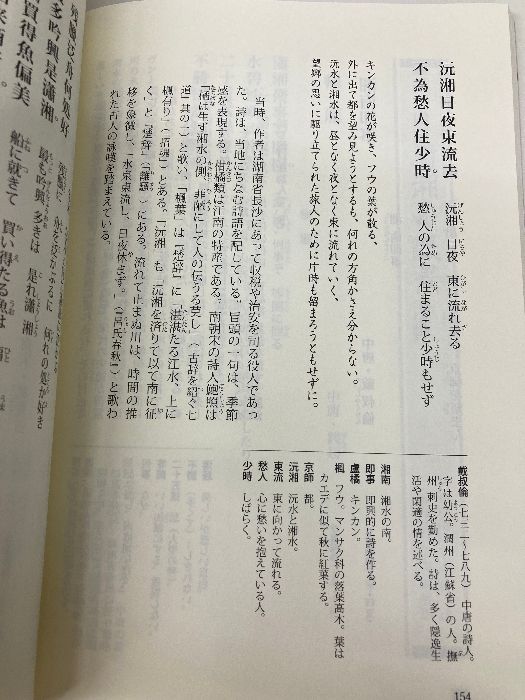 沅湘日夜東流去
不為愁人住少時
沅湘　日夜　東に流れ去る
愁人の為に　住まること少時もせず
キンカンの花が咲き、フウの葉が散る、
外に出て都を望み見ようとするも、何れの方角かさえ分からない。
沅水と湘水は、昼となく夜となく東に流れていく、
望郷の思いに駆り立てられた旅人のために片時も留まろうともせずに。
当時、作者は湖南省長沙にあって収税や治安を司る役人であっ
た。詩は、当地にちなむ詩語を配している。冒頭の一句は、季節
感を表現する。柑橘類は江南の特産である。南朝宋の詩人鮑照は
「橘は生ず湘水の側、菲陋にして人の伝うる莫し」（「古辞を紹ぐ七
道」其の二）と歌い、「楓葉」は『楚辞』に「湛湛たる江水、上に
楓有り」（「招魂」）とある。「沅湘」も「沅湘を済りて以て南に征
く」と『楚辞』（「離騒」）にある。流れて止まぬ川は、時間の推
移を象徴し、「水泉東流し、日夜休まず。」（『呂氏春秋』）と歌わ
れた古人の詠嘆を踏まえている。
戴叔倫（七三二〜七八九）　中唐の詩人。
字は幼公。潤州（江蘇省）の人。撫
州刺史を勤めた。詩は、多く隠逸生
活や閑適の情を述べる。
湘南　湘水の南。
即事　即興的に詩を作る。
盧橘　キンカン。
楓　フウ。マンサク科の落葉高木。葉は
カエデに似て秋に紅葉する。
京師　都。
沅湘　沅水と湘水。
東流　東に向かって流れる。
愁人　心に愁いを抱えている人。
少時　しばらく。
154
多吟興是瀟湘
買得魚偏美
最も吟興多きは　是れ瀟湘
船に就きて　買い得たる魚は